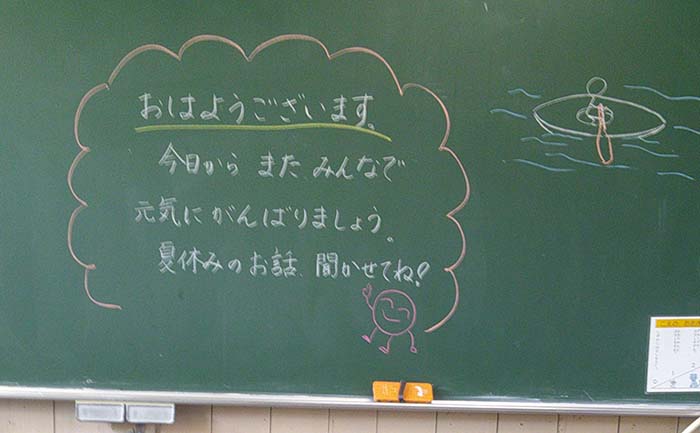 おはようございます。
今日から また、みんなで
元気にがんばりましょう。
夏休みのお話、聞かせてね!